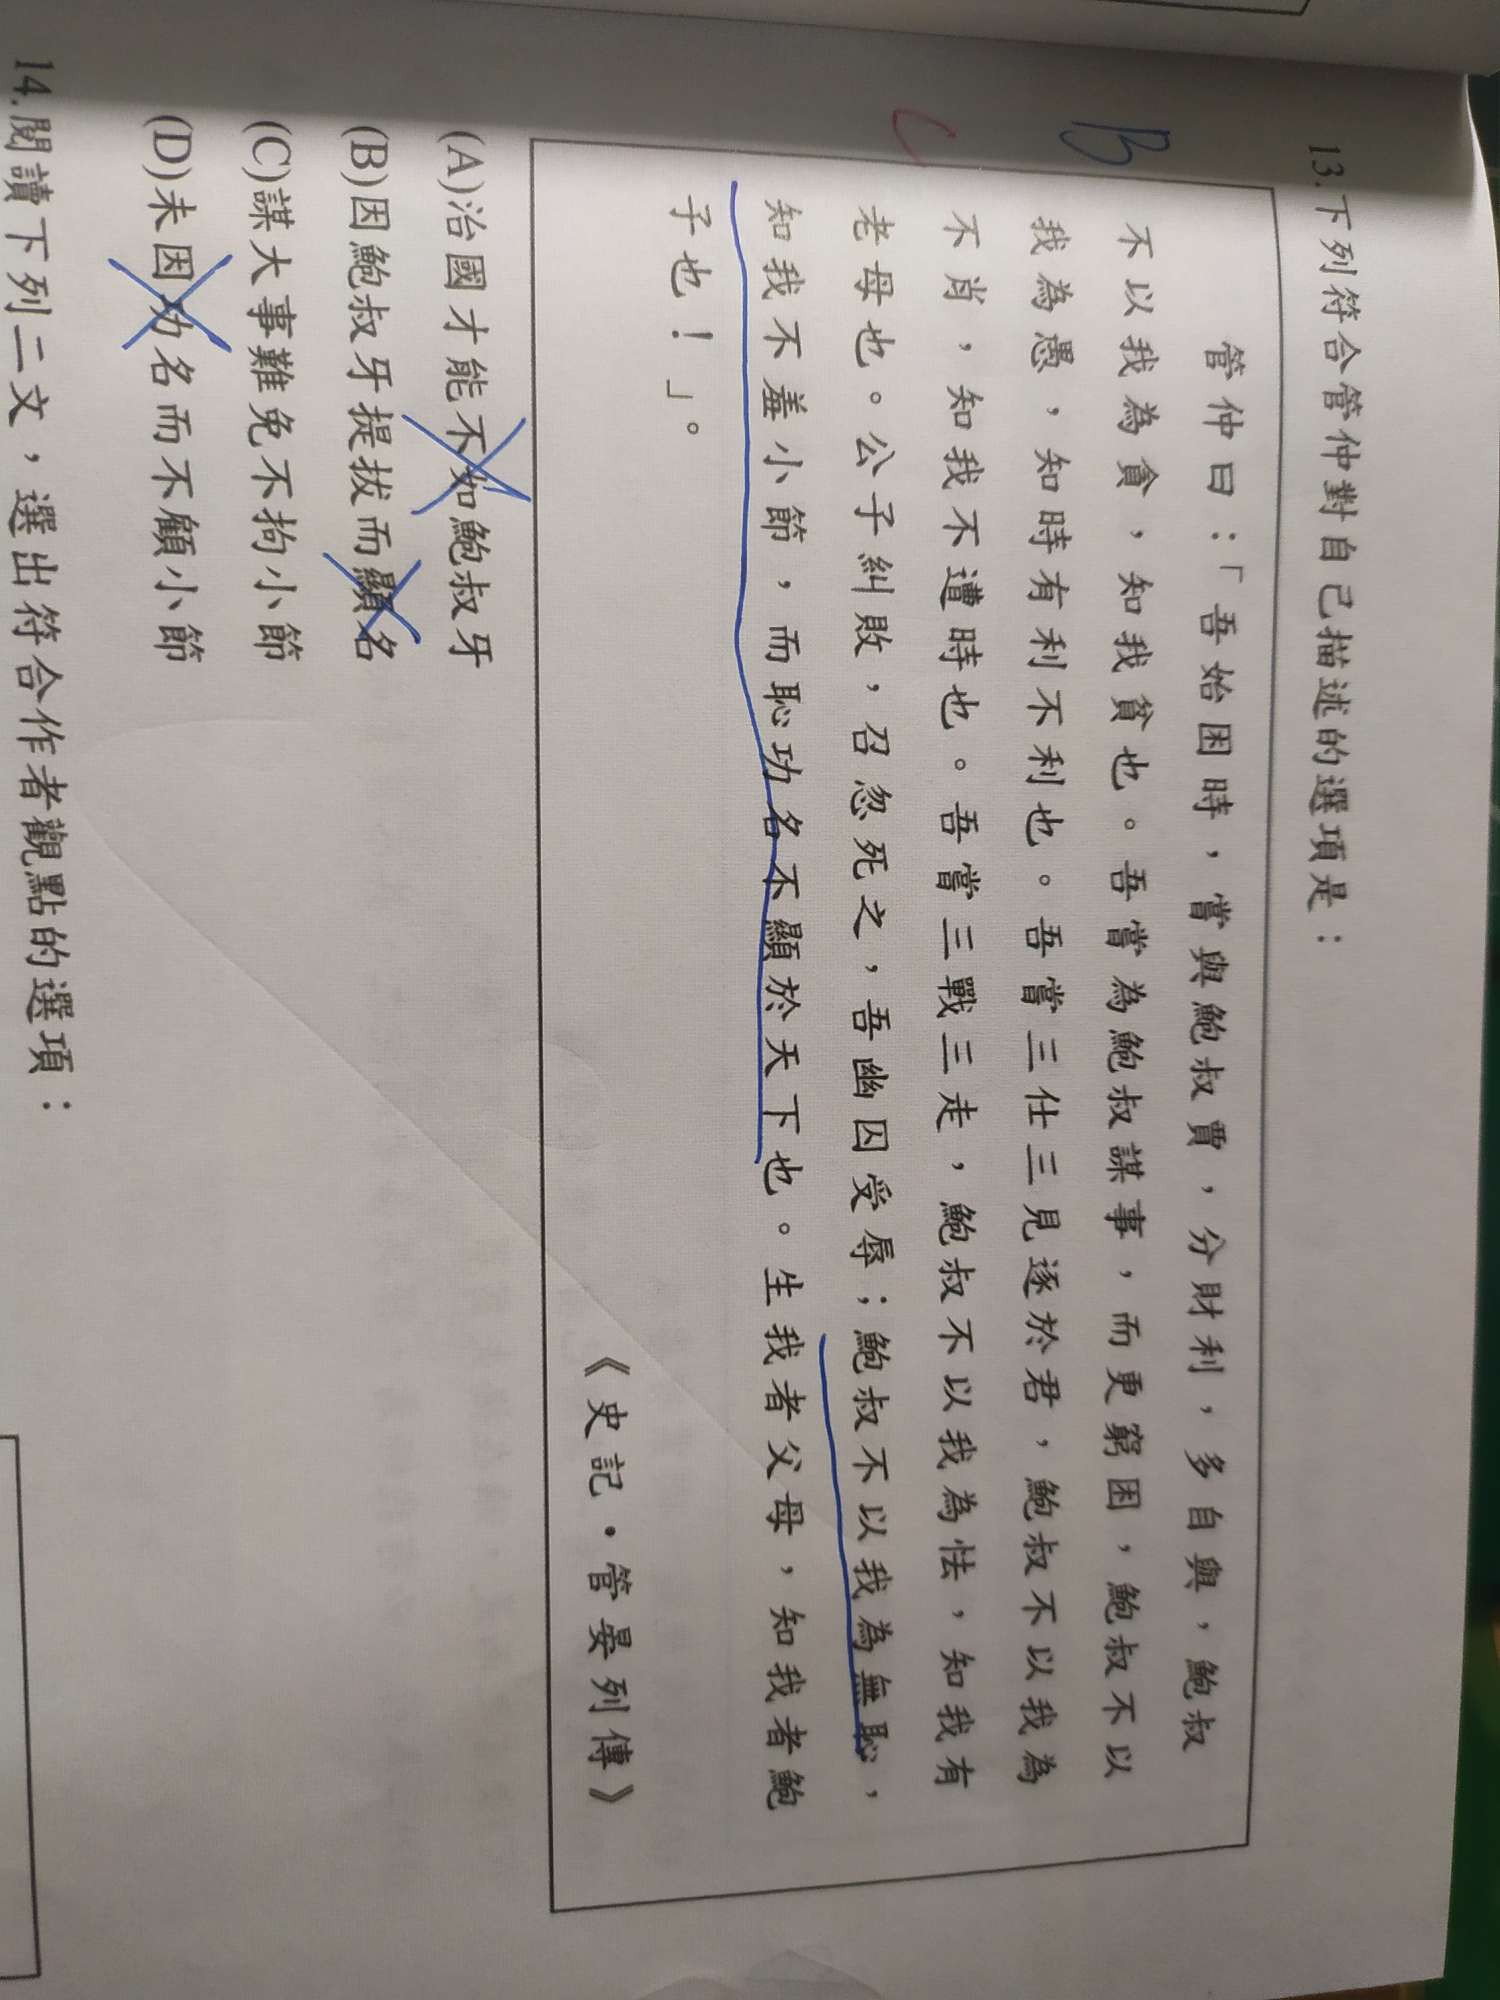 13.下列符合管仲對自己描述的選項是：
B
C
管仲曰：「吾始困時，嘗與鮑叔賈，分財利，多自與，鮑叔
不以我為貪，知我貧也。吾嘗為鮑叔謀事，而更窮困，鮑叔不以
我為愚，知時有利不利也。吾嘗三仕三見逐於君，鮑叔不以我為
不肖，知我不遭時也。吾嘗三戰三走，鮑叔不以我為怯，知我有
老母也。公子糾敗，召忽死之，吾幽囚受辱；鮑叔不以我為無恥，
知我不羞小節，而恥功名不顯於天下也。生我者父母，知我者鮑
子也！」。
《史記·管晏列傳》
(A)治國才能不如鮑叔牙
(B)因鮑叔牙提拔而顯名
(C)謀大事難免不拘小節
(D)未因功名而不顧小節
14.閱讀下列二文，選出符合作者觀點的選項：